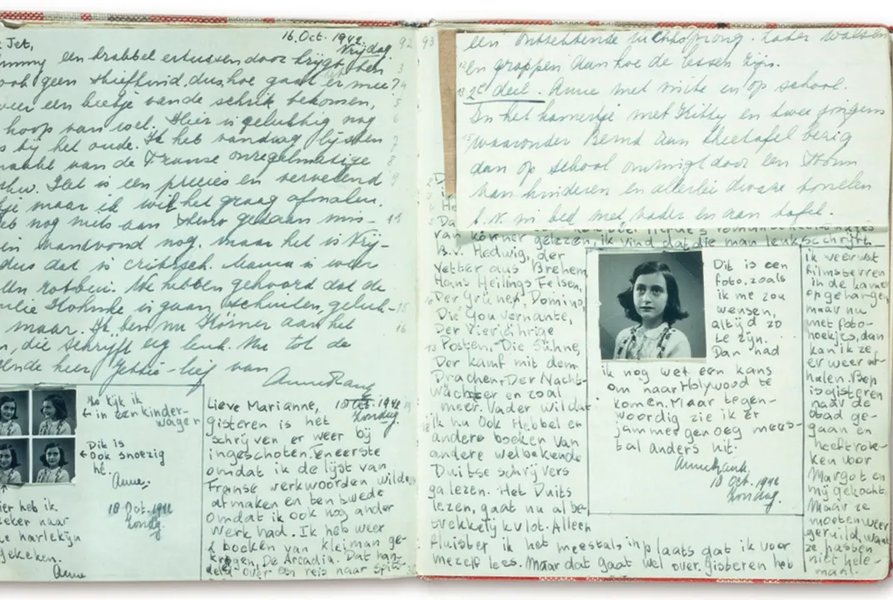 Jet,
16 Oct. 1942
Vrijdag.
92
geen stiefkind, dus hoe gaat het er mee?
een beetje van de schrik bekomen,
hoop van wel. Hier is gelukkig nog
bij het oude. Ik heb vandaag lijsten
van de Franse onregelmatige
Het is een precies en vervelend
maar ik wil het graag afmaken.
nog niets aan Steno gedaan mis-
vanavond nog, maar het is Vrij-
dus dat is critisch. Mama is weer
We hebben gehoord dat de
is gaan schuilen, geluk-
maar. Ik ben nu Körner aan het
die schrijft erg leuk. Nu tot de
Jettie-lief van
Anne Frank
Nu kijk ik
in een kinder-
wager
Dit is
ook snoezig
hè.
Anne.
18 Oct. 1942
Zondag.
hier heb ik
zeker naar
harlekijn
gekeken.
Anne
Lieve Marianne,
18 Oct. 1942
Zondag.
gisteren is het
schrijven er weer bij
ingeschoten. Ten eerste
omdat ik de lijst van
Franse werkwoorden wilde
afmaken en ten twede
omdat ik ook nog ander
werk had. Ik heb weer
2 boeken van Kleiman ge-
kregen, De Arcadia. Dat han-
deld over een reis naar Spits-
93
een ontzettende luchtsprong. Later walsen
en grappen aan hoe de lessen zijn.
2e deel. Anne met visite en op school.
In het kamertje met Kitty en twee jongens
waaronder Bernd aan theetafel bezig
dan op school omringd door een
kinderen en allerlei dwaze
b.v. in bed met vader en aan tafel.
van Körner gelezen, ik vind dat die man leuk schrijft.
B.v. Hedwig, der
Vetter aus Bremen,
Hans Heilings Felsen,
Der Grüne Domino,
Die Gouvernante,
Der Vierjährige
Posten, Die Sühne,
Der Kampf mit dem
Drachen, Der Nacht-
wächter en zoal
meer. Vader wil dat
ik nu ook Hebbel en
andere boeken van
andere welbekende
Duitse schrijvers
ga lezen. Het Duits
lezen, gaat nu al be-
trekkelijk vlot. Alleen
fluister ik het meestal inplaats dat ik voor
mezelf lees. Maar dat gaat wel over. Gisteren heb
Dit is een
foto, zoals
ik me zou
wensen,
altijd zo
te zijn.
Dan had
ik nog wel een kans
om naar Holywood te
komen. Maar tegen-
woordig zie ik er
jammer genoeg mees-
tal anders uit.
Anne Frank.
18 Oct. 1942
Zondag.
ik verust
filmsterren
in de kamer
opgehangen
maar nu
met foto-
hoekjes, dan
kan ik ze
er weer af-
halen. Bep
is gisteren
naar de
stad ge-
gaan en
heeft rok-
ken voor
Margot en
mij gekocht.
Maar ze
moeten weer
geruild, want
ze passen
niet hele-
maal.